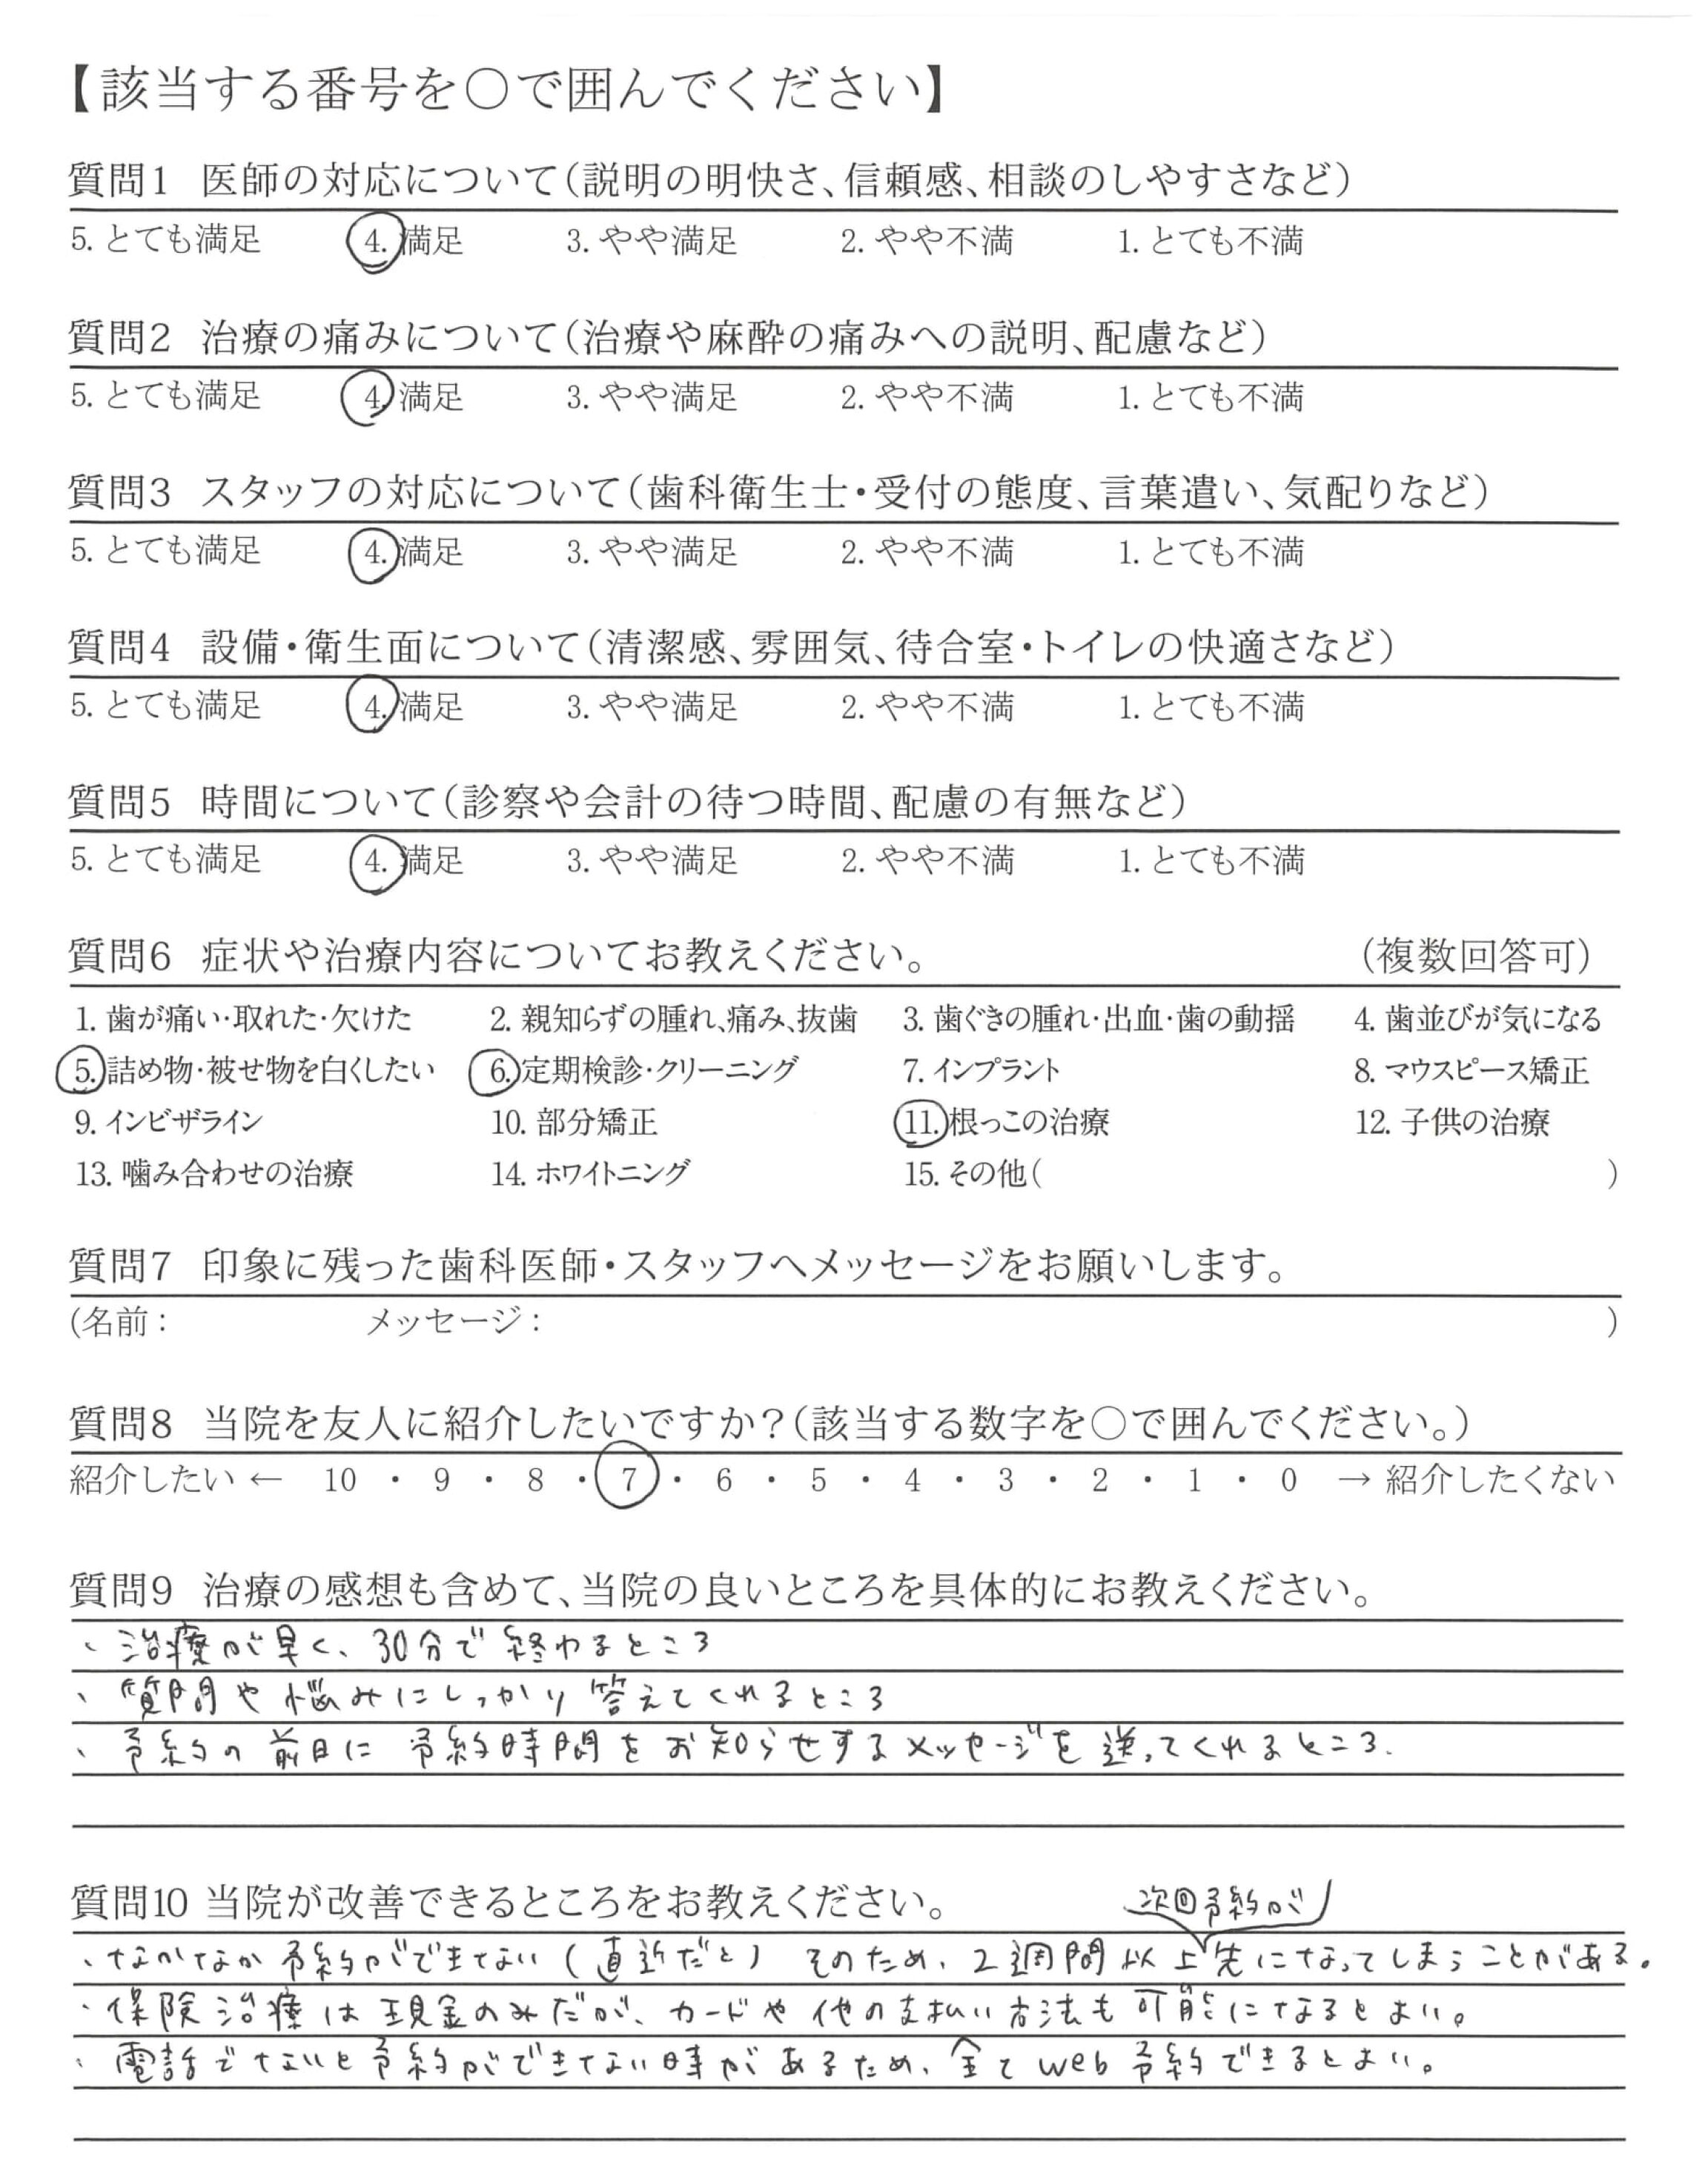 【該当する番号を○で囲んでください】
質問1 医師の対応について(説明の明快さ、信頼感、相談のしやすさなど)
5. とても満足 4. 満足 3. やや満足 2. やや不満 1. とても不満
質問2 治療の痛みについて(治療や麻酔の痛みへの説明、配慮など)
5. とても満足 4. 満足 3. やや満足 2. やや不満 1. とても不満
質問3 スタッフの対応について(歯科衛生士・受付の態度、言葉遣い、気配りなど)
5. とても満足 4. 満足 3. やや満足 2. やや不満 1. とても不満
質問4 設備・衛生面について(清潔感、雰囲気、待合室・トイレの快適さなど)
5. とても満足 4. 満足 3. やや満足 2. やや不満 1. とても不満
質問5 時間について(診察や会計の待つ時間、配慮の有無など)
5. とても満足 4. 満足 3. やや満足 2. やや不満 1. とても不満
質問6 症状や治療内容についてお教えください。 (複数回答可)
1. 歯が痛い・取れた・欠けた 2. 親知らずの腫れ、痛み、抜歯 3. 歯ぐきの腫れ・出血・歯の動揺 4. 歯並びが気になる
5. 詰め物・被せ物を白くしたい 6. 定期検診・クリーニング 7. インプラント 8. マウスピース矯正
9. インビザライン 10. 部分矯正 11. 根っこの治療 12. 子供の治療
13. 噛み合わせの治療 14. ホワイトニング 15. その他( )
質問7 印象に残った歯科医師・スタッフへメッセージをお願いします。
(名前: メッセージ: )
質問8 当院を友人に紹介したいですか?(該当する数字を○で囲んでください。)
紹介したい ← 10 ・ 9 ・ 8 ・ 7 ・ 6 ・ 5 ・ 4 ・ 3 ・ 2 ・ 1 ・ 0 → 紹介したくない
質問9 治療の感想も含めて、当院の良いところを具体的にお教えください。
、治療が早く、30分で終わるところ
、質問や悩みにしっかり答えてくれるところ
、予約の前日に予約時間をお知らせするメッセージを送ってくれるところ.
質問10 当院が改善できるところをお教えください。
次回予約が
、なかなか予約ができない(直近だと) そのため、2週間以上先になってしまうことがある。
・保険治療は現金のみだが、カードや他の支払い方法も可能になるとよい。
・電話でないと予約ができない時があるため、全てweb予約できるとよい。